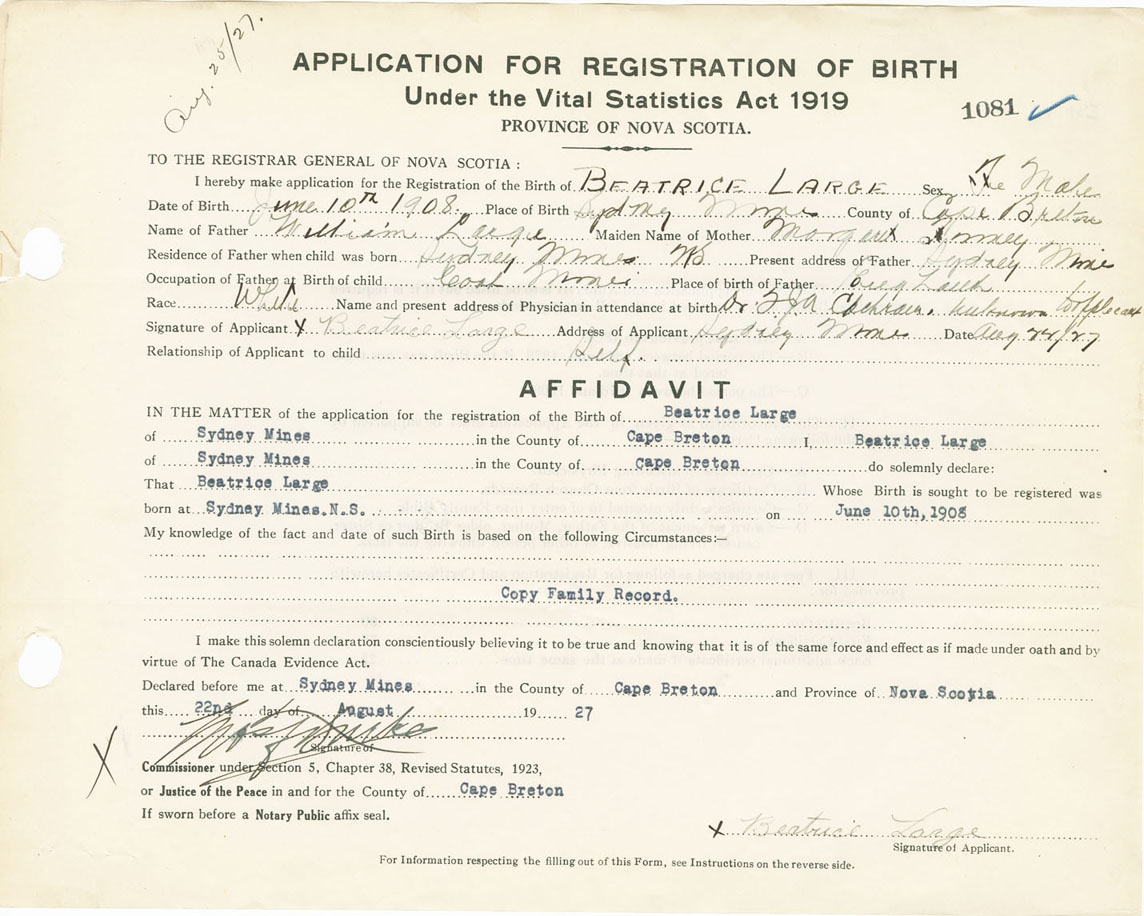 Aug. 25/27.
APPLICATION FOR REGISTRATION OF BIRTH
Under the Vital Statistics Act 1919
1081
PROVINCE OF NOVA SCOTIA.
TO THE REGISTRAR GENERAL OF NOVA SCOTIA :
I hereby make application for the Registration of the Birth of BEATRICE LARGE Sex Fe Male
Date of Birth June 10TH 1908. Place of Birth Sydney Mines County of Cape Breton
Name of Father William Large Maiden Name of Mother Margaret
Residence of Father when child was born Sydney Mines Present address of Father Sydney Mines
Occupation of Father at Birth of child Coal Mines Place of birth of Father England
Race White Name and present address of Physician in attendance at birth Dr. Cochran. unknown to applicant
Signature of Applicant X Beatrice Large Address of Applicant Sydney Mines Date Aug 24/27
Relationship of Applicant to child Self.
AFFIDAVIT
IN THE MATTER of the application for the registration of the Birth of Beatrice Large
of Sydney Mines in the County of Cape Breton I, Beatrice Large
of Sydney Mines in the County of Cape Breton do solemnly declare:
That Beatrice Large Whose Birth is sought to be registered was
born at Sydney Mines.N.S. on June 10th,1908
My knowledge of the fact and date of such Birth is based on the following Circumstances:—
Copy Family Record.
I make this solemn declaration conscientiously believing it to be true and knowing that it is of the same force and effect as if made under oath and by
virtue of The Canada Evidence Act.
Declared before me at Sydney Mines in the County of Cape Breton and Province of Nova Scotia
this 22nd day of August 19 27
Signature of
Commissioner under Section 5, Chapter 38, Revised Statutes, 1923,
or Justice of the Peace in and for the County of Cape Breton
If sworn before a Notary Public affix seal.
X Beatrice Large
Signature of Applicant.
For Information respecting the filling out of this Form, see Instructions on the reverse side.